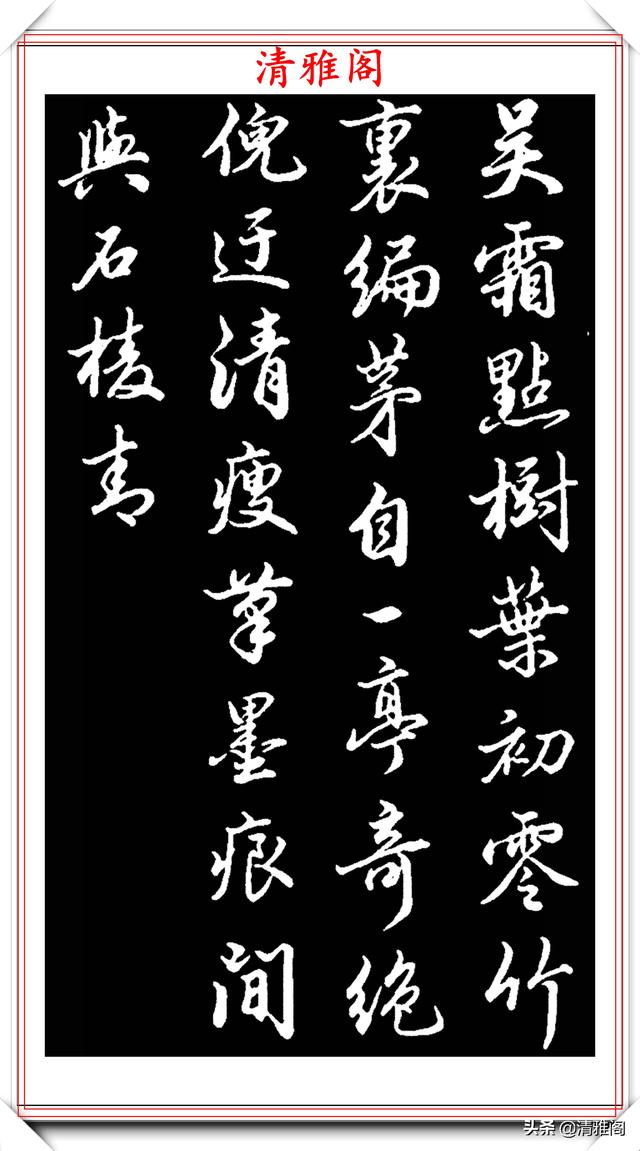 清雅阁
吴霜點樹葉初零竹
裏編茅自一亭奇絶
倪迂清瘦筆墨痕間
與石棱青
头条 @清雅阁